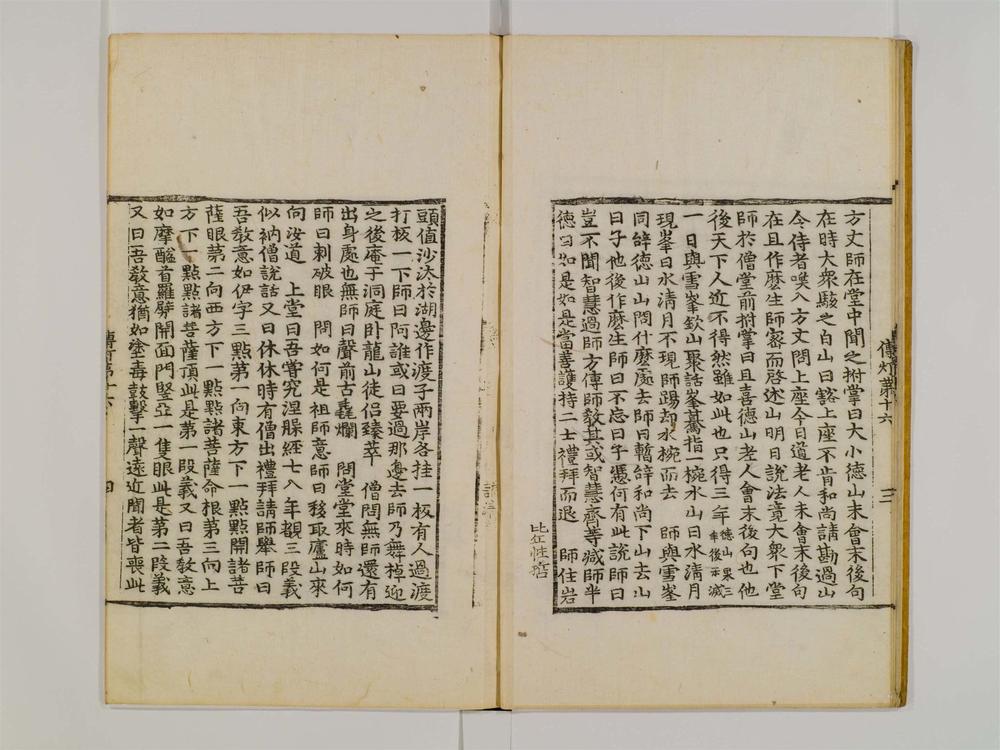 傳灯第十六　三
方丈師在堂中聞之拊掌曰大小德山未會末後句
在時大衆駭之白山曰豁上座不肯和尚請勘過山
令侍者喚入方丈問上座今日道老人未會末後句
在且作麽生師密而啓述山明日說法竟大衆下堂
師於僧堂前拊掌曰且喜德山老人會末後句也他
後天下人近不得然雖如此也只得三年德山果三年後示滅
一日與雪峯欽山聚話峯驀指一椀水山曰水清月
現峯曰水清月不現師踢却水椀而去　師與雪峯
同辞德山山問什麽處去師曰暫辞和尚下山去山
曰子他後作麽生師曰不忘曰子憑何有此說師曰
豈不聞智慧過師方傳師敎其或智慧齊等减師半
德曰如是如是當善護持二士禮拜而退　師住岩
比丘性
頭值沙汰於湖邊作渡子兩岸各挂一板有人過渡
打板一下師曰阿誰或曰要過那邊去師乃舞棹迎
之後庵于洞庭卧龍山徒侣臻萃　僧問無師還有
出身處也無師曰聲前古毳爛　問堂堂來時如何
師曰刺破眼　問如何是祖師意師曰移取廬山來
向汝道　上堂曰吾甞究涅槃經七八年覩三段義
似衲僧說話又曰休休時有僧出禮拜請師舉師曰
吾敎意如伊字三點第一向東方下一點點開諸菩
薩眼第二向西方下一點點諸菩薩命根第三向上
方下一點點諸菩薩頂此是第一段義又曰吾敎意
如摩醯首羅劈開面門竪亞一隻眼此是第二段義
又曰吾敎意猶如塗毒鼓擊一聲遠近聞者皆喪此
傳灯第十六　四